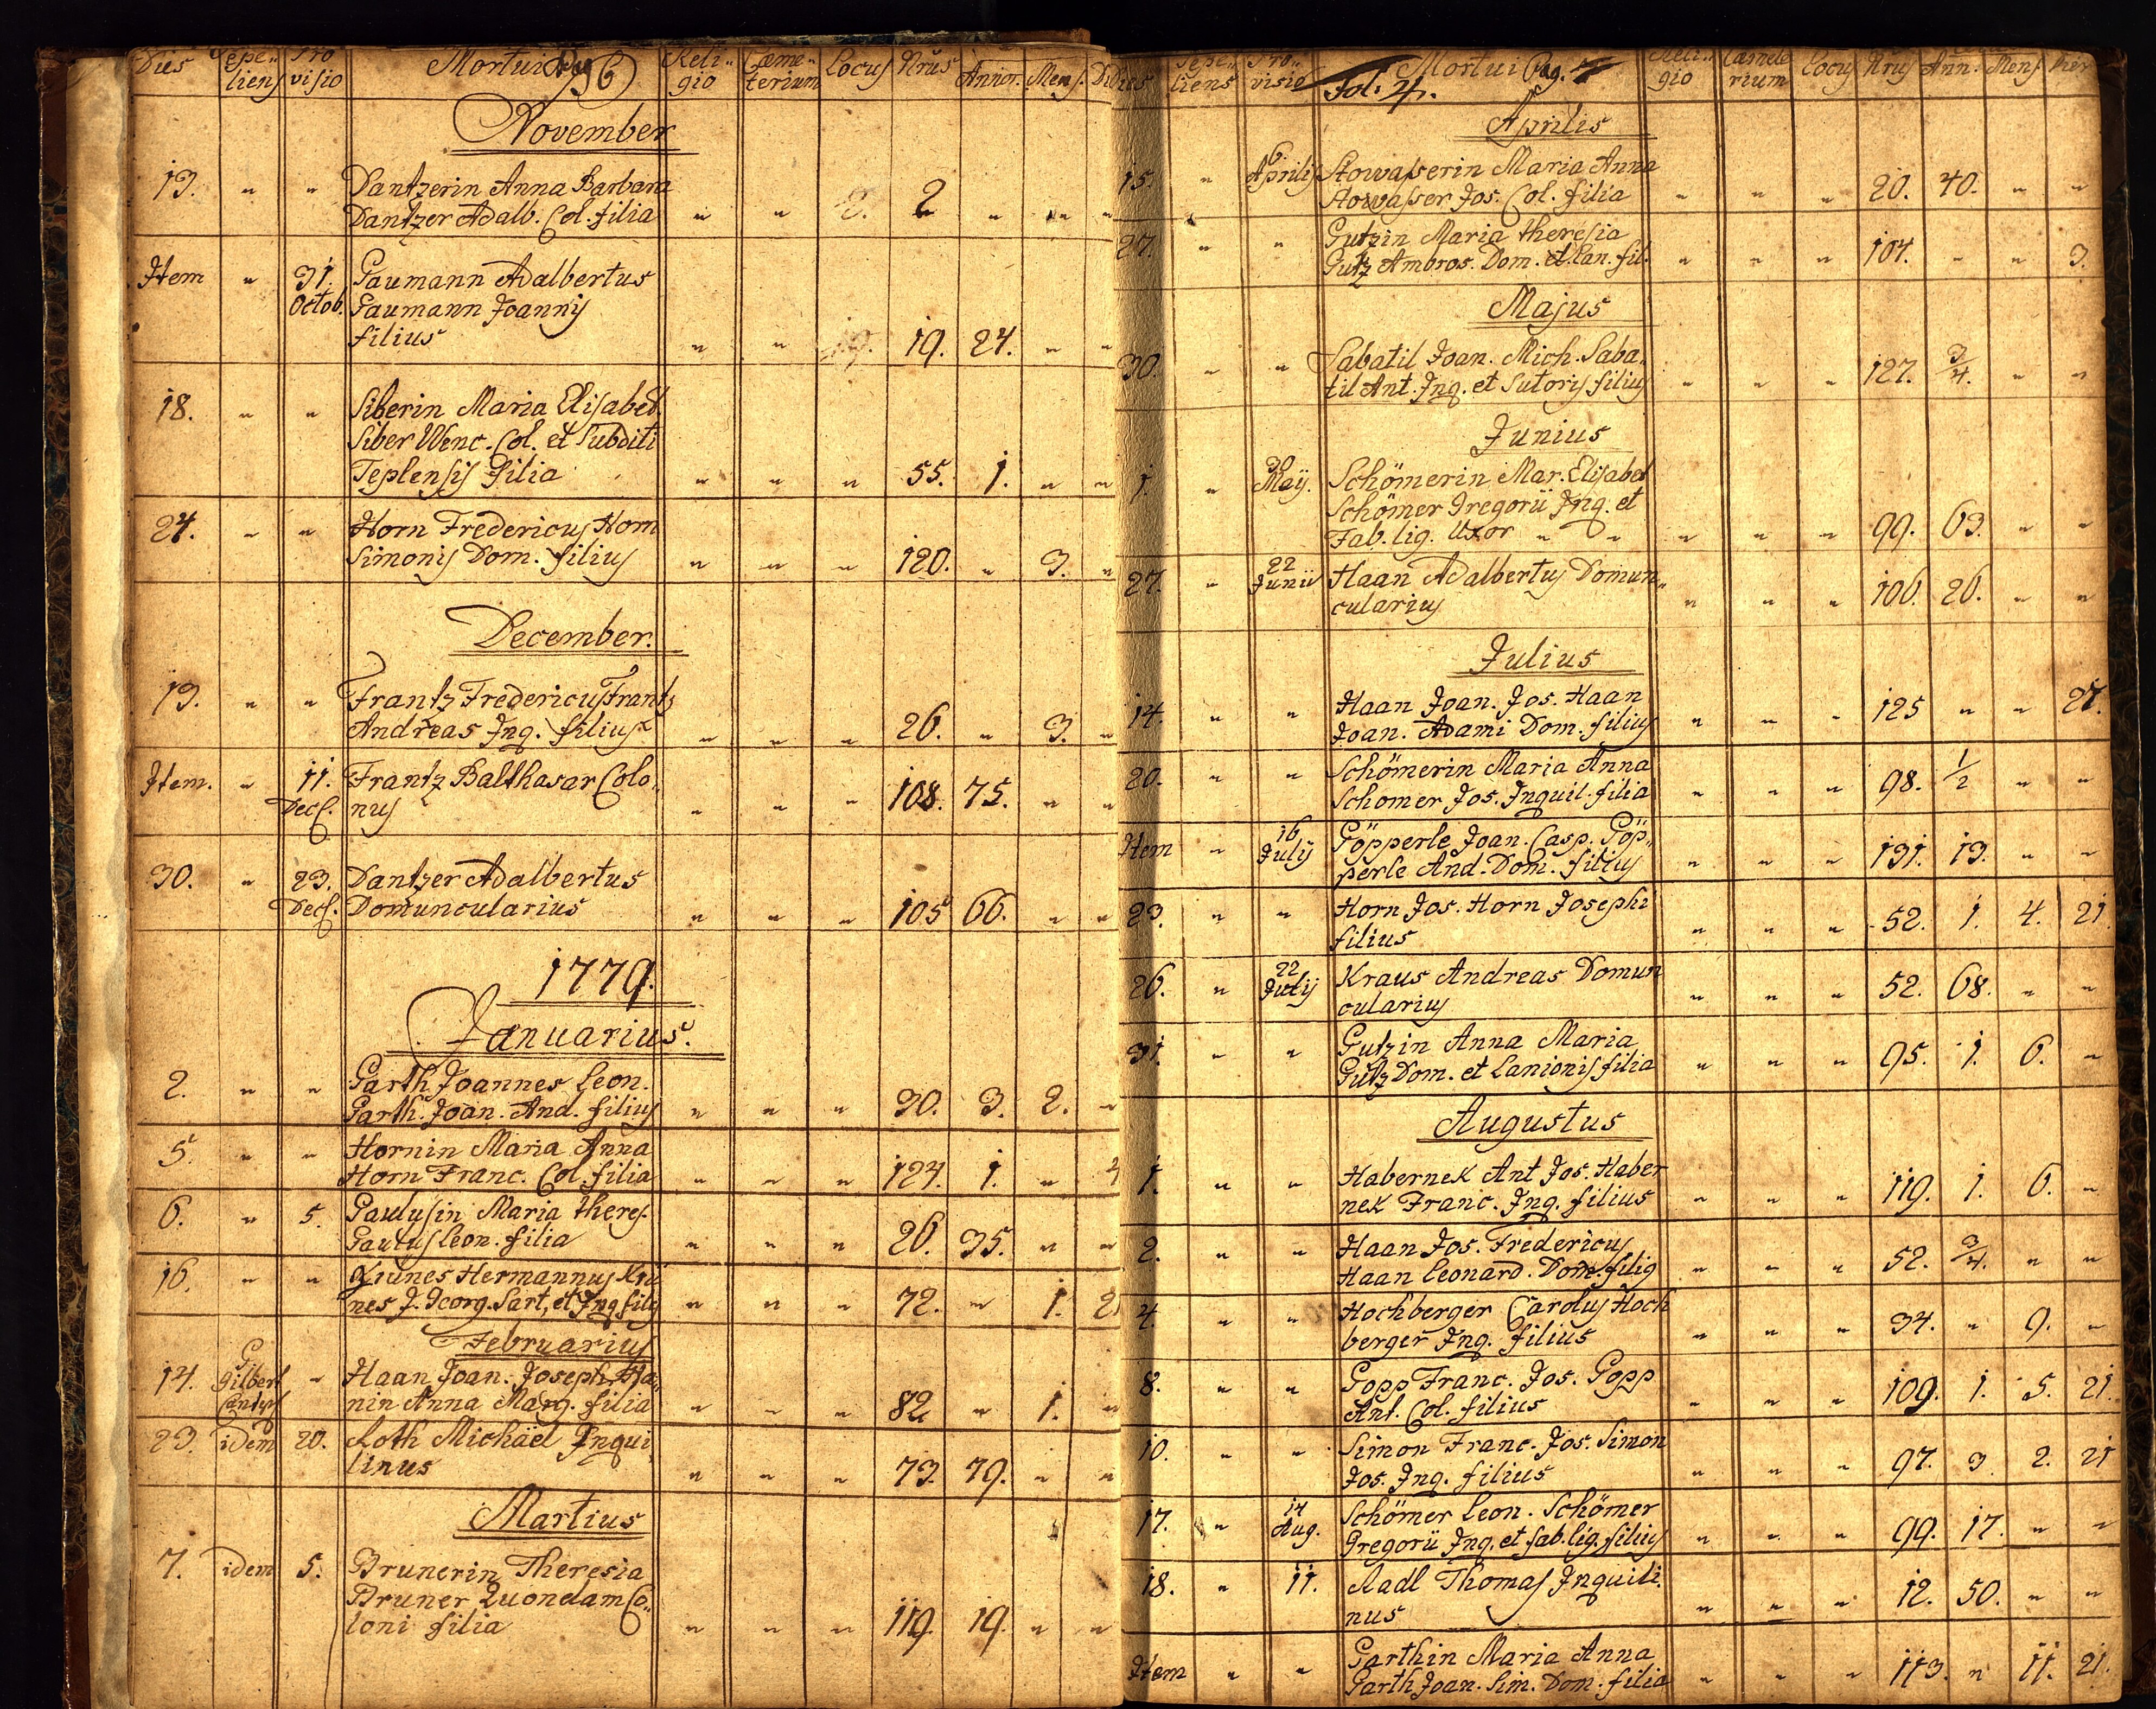 Dies Sepe- Pro Mortui Pag 6 Reli- Cæme- Locus Nrus
liens visio gio terium Annor. Mens. Di
November
13. " " Dantzerin Anna Barbara
Dantzer Adalb. Col. filia " " 2. 2 " " "
Item " 31. Gaumann Adalbertus
Octob. Gaumann Joannis
filius " " 19. 19. 24. " "
18. " " Siberin Maria Elisabet.
Siber Wenc. Col. et Subditi
Teplensis filia " " " 55. 1. " "
24. " " Horn Fredericus Horn
Simonis Dom. filius " " " 120. " 3. "
December.
13. " " Frantz Fredericus Frantz
Andreas Inq. filius " " " 26. " 3. "
Item. " 11. Frantz Balthasar Colo-
Dec. nus " " " 108. 75. " "
30. " 23. Dantzer Adalbertus
Dec. Domuncularius " " " 105 66. " "
1779.
Januarius.
2. " " Garth Joannes Leon.
Garth. Joan. And. filius " " " 30. 3. 2. "
5. " " Hornin Maria Anna
Horn Franc. Col. filia " " " 124. 1. "
6. " 5. Paulusin Maria theres.
Paulus Leon. filia " " " 26. 35. " "
16. " " Krünes Hermannus Krü
nes J. Georg. Sart, et Inq filij " " " 72. " 1. 2
Februarius
14. P. Gilbert " Haan Joan. Joseph. Ha-
nin Anna Marg. filia " " " 82 " 1. "
23. idem 20. Roth Michäel Inqui
linus " " " 73. 79. " "
Martius
7. idem 5. Brunerin Theresia
Bruner Quondam Co-
loni filia " " " 119. 19. " "
Dies Sepe- Pro- Mortui Pag. 7 Reli- Cæmete Locus Nrus Ann. Mens. Dies
liens visio Fol: 4. gio rium
Aprilis
15. " 6. Aprilis Stowasserin Maria Anna
Stowasser Jos. Col. filia " " " 20. 40. " "
27. " " Gutzin Maria theresia
Gutz Ambros. Dom. et Lan. fil. " " " 104. " " 3.
Majus
30. " " Sabatil Joan. Mich. Saba-
til Ant. Inq. et Sutoris filius " " " 127. 3/4. " "
Junius
1. " 30 Maÿ. Schömerin Mar. Elisabet
Schömer Gregorii Inq. et
Fab. lig. Uxor " " " " " 99. 63. " "
27. " 22 Junii Haan Adalbertus Domun-
cularius " " " 106. 26. " "
Julius
14. " " Haan Joan. Jos. Haan
Joan. Adami Dom. filius " " " 125 " " 27.
20. " " Schömerin Maria Anna
Schomer Jos. Inquil. filia " " " 98. 1/2 " "
Item " 16 Julij Göpperle Joan. Casp. Göp-
perle And. Dom. filius " " " 131. 13. " "
23. " " Horn Jos. Horn Josephi
filius " " " 52. 1. 4. 21.
26. " 22 Julij Kraus Andreas Domun
cularius " " " 52. 68. " "
31. " " Gutzin Anna Maria
Gutz Dom. et Lanionis filia " " " 95. 1. 6. "
Augustus
1. " " Habernek Ant Jos. Haber
nek Franc. Inq. filius " " " 119. 1. 6. "
2. " " Haan Jos. Fredericus
Haan Leonard. Dom. filig " " " 52. 3/4. " "
4. " " Hochberger Carolus Hoch
berger Inq. filius " " " 34. " 9. "
8. " " Gopp Franc. Jos. Gopp
Ant. Col. filius " " " 109. 1. 5. 21.
10. " " Simon Franc. Jos. Simon
Jos. Inq. filius " " " 97. 3 2. 21
17. " 14 Aug. Schömer Leon. Schömer
Gregorii Inq. et fab. lig. filius " " " 99. 17. " "
18. " 11. Radl Thomas Inquili.
nus " " " 12. 50. " "
Item " " Garthin Maria Anna
Garth Joan. Sim. Dom. filia " " " 113. " 11. 21.